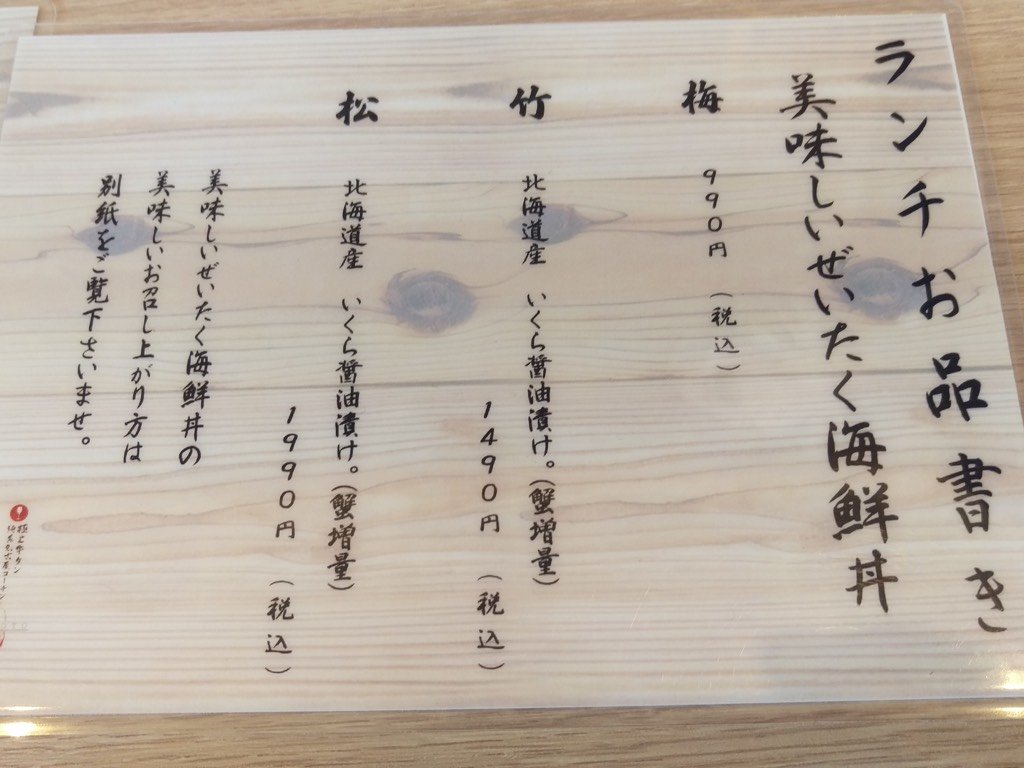 ランチお品書き
美味しいぜいたく海鮮丼
梅
990円（税込）
竹
北海道産 いくら醤油漬け。（蟹増量）
1490円（税込）
松
北海道産 いくら醤油漬け。（蟹増量）
1990円（税込）
美味しいぜいたく海鮮丼の
美味しいお召し上がり方は
別紙をご覧下さいませ。